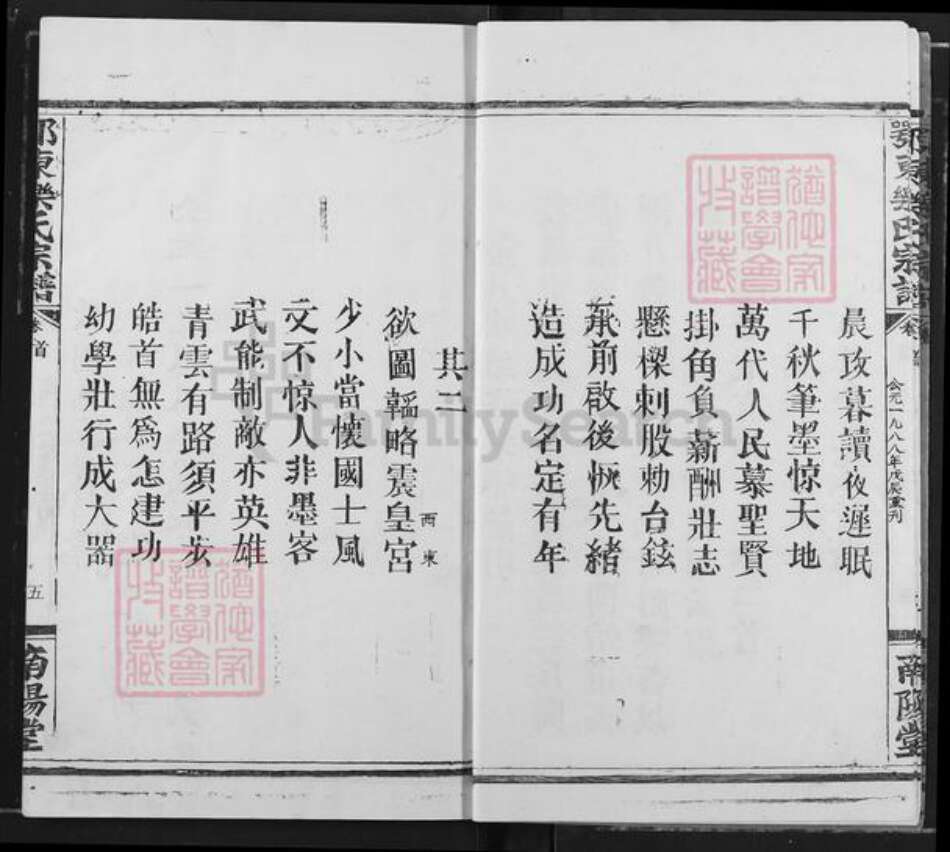 鄂東樂氏宗譜
卷首
公元一九八八年戊辰重刊
南陽堂
晨攻暮讀夜遲眠
千秋筆墨惊天地
萬代人民慕聖賢
掛角負薪酬壯志
懸樑刺股勒台鉉
承前啟後恢先緒
造成功名定有年
其二
欲圖韜略震皇宮
西東
少小當懷國士風
文不惊人非墨客
武能制敵亦英雄
青雲有路須平步
皓首無為怎建功
幼學壯行成大器
鄂東樂氏宗譜
卷首
五
南陽堂
譜學會
收藏
譜學會
收藏
FamilySearch